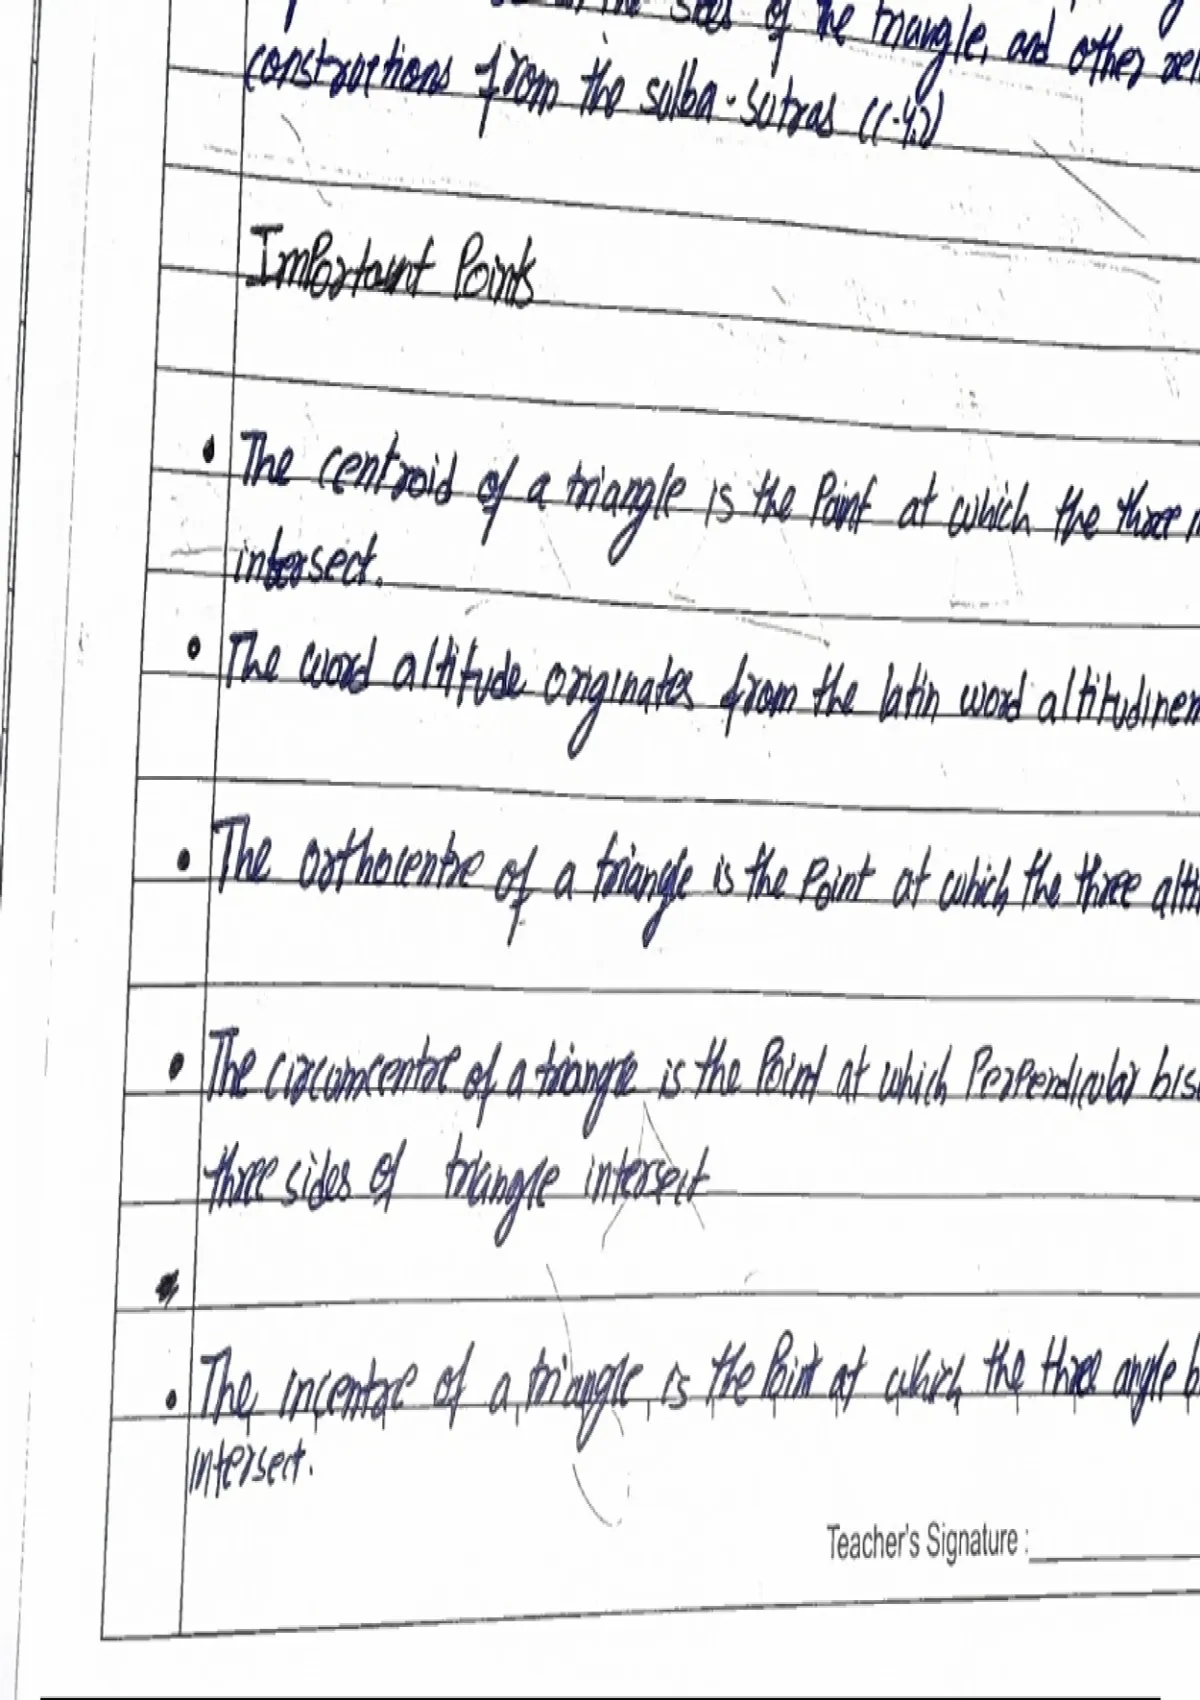 the sides of the triangle, and other
constructions from the sulba-sutras (C-4.2)
Important Points
• The centroid of a triangle is the Point at which the three
intersect.
• The word altitude originates from the latin word altitudinem
• The orthocentre of a triangle is the Point at which the three alti
• The circumcentre of a triangle is the Point at which Perpendicular bis
three sides of triangle intersect
• The incentre of a triangle is the Point at which the three angle b
intersect.
Teacher's Signature :